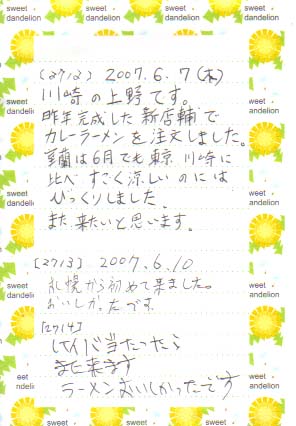 sweet dandelion sweet dandelion sweet dandelion
(2712) 2007.6.7(木)
川崎の上野です。
昨年完成した新店舗で
カレーラーメンを注文しました。
室蘭は6月でも東京 川崎に
比べ すごく涼しい のには
びっくりしました。
また 来たいと思います。
[2713] 2007.6.10
札幌から初めて来ました。
おいしかったです。
[2714]
1人1人当たったら
また来ます
ラーメンおいしかったです
sweet dandelion sweet dandelion sweet dandelion